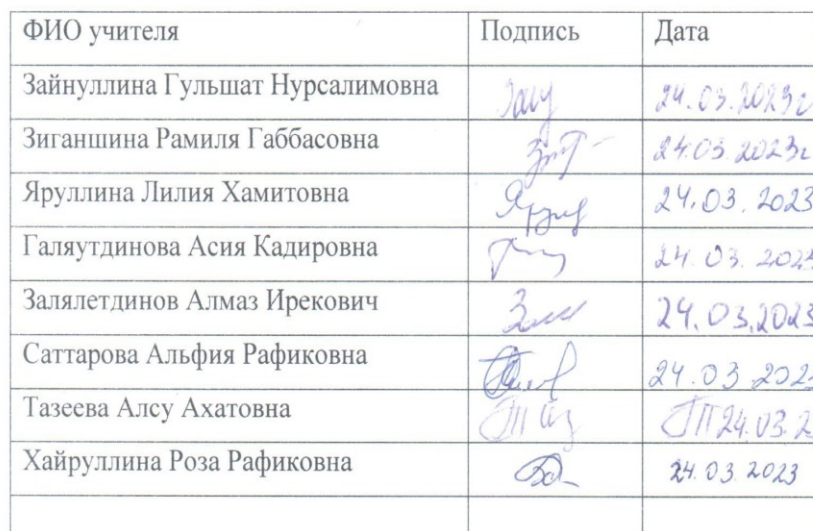 ФИО учителя Подпись Дата
Зайнуллина Гульшат Нурсалимовна 24.03.2023г
Зиганшина Рамиля Габбасовна 24.03.2023г
Яруллина Лилия Хамитовна 24.03.2023
Галяутдинова Асия Кадировна 24.03.2023
Залялетдинов Алмаз Ирекович 24.03.2023
Саттарова Альфия Рафиковна 24.03.2023
Тазеева Алсу Ахатовна 24.03.2
Хайруллина Роза Рафиковна 24.03.2023